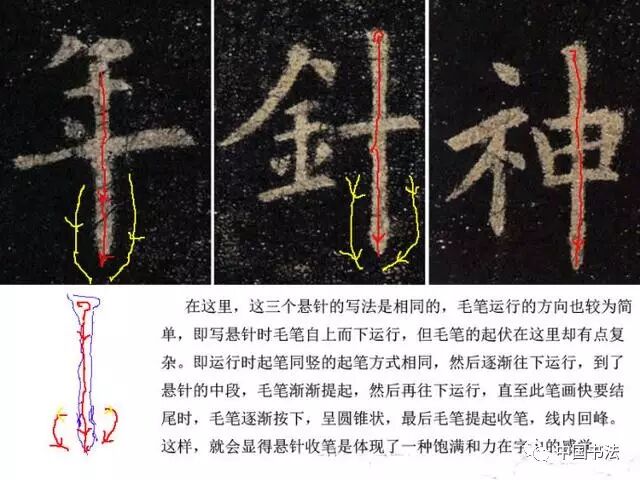 年 針 神
在这里，这三个悬针的写法是相同的，毛笔运行的方向也较为简
单，即写悬针时毛笔自上而下运行，但毛笔的起伏在这里却有点复
杂。即运行时起笔同竖的起笔方式相同，然后逐渐往下运行，到了
悬针的中段，毛笔渐渐提起，然后再往下运行，直至此笔画快要结
尾时，毛笔逐渐按下，呈圆锥状，最后毛笔提起收笔，线内回峰。
这样，就会显得悬针收笔是体现了一种饱满和力在字中的感觉。
中国书法